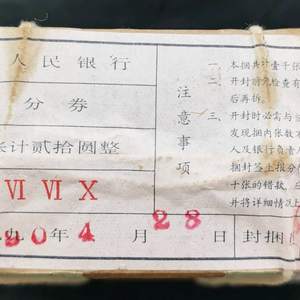 人民银行
分券
计贰拾圆整
VI VI X
九0年4月28日
封捆
注意事项
一、本捆共计壹千张
二、开封前先检查有
后再拆。
三、开封时必需与
发现捆内张数
人及银行负责
捆封签上报分
十张的错款,
并将详细情况